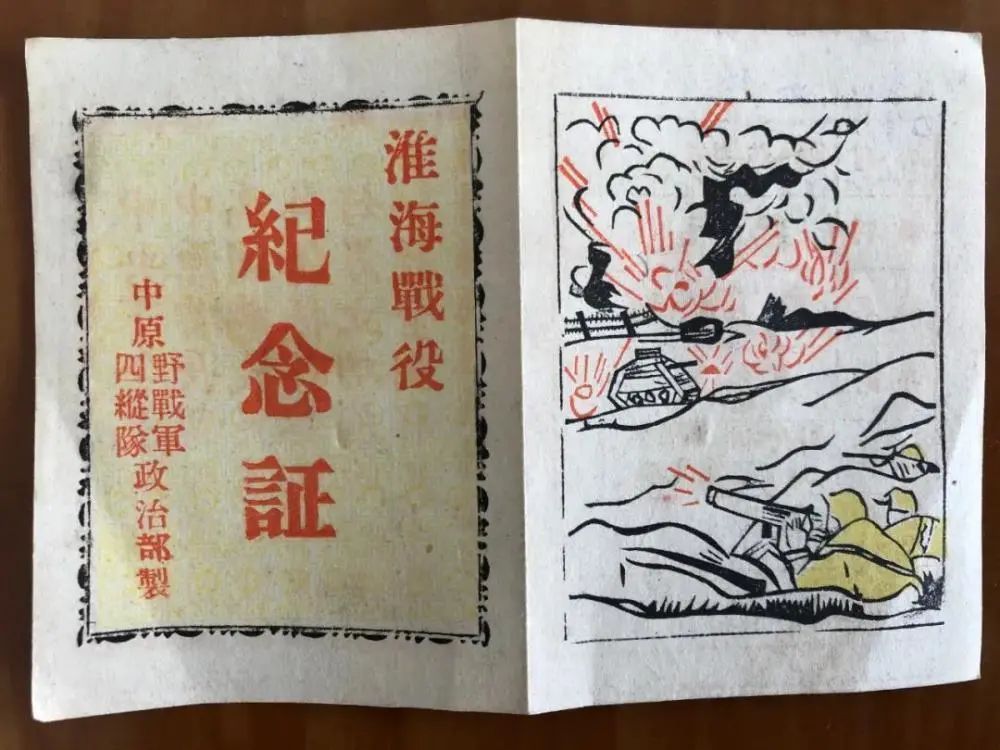 淮海戰役
紀念証
中原野戰軍四縱隊政治部製